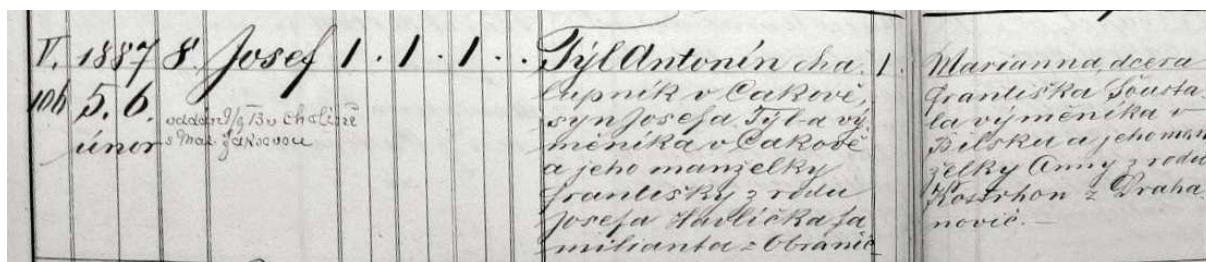 V. 1887 8. Josef 1 . 1 . 1 . .
10h 5. 6.
únor
oddán 9/9 13 v Cholině
s Mar. Zákovou
Týl Antonín cha-
lupník v Cakově,
syn Josefa Týl-a vý-
měníka v Cakově
a jeho manželky
Františky z rodu
Josefa Havlíčka fa-
milianta z Obranic
1.
Marianna, dcera
Františka Šousta-
la výměníka v
Bílsku a jeho man-
želky Anny z rodu
Kostrhon z Draha-
novic. —